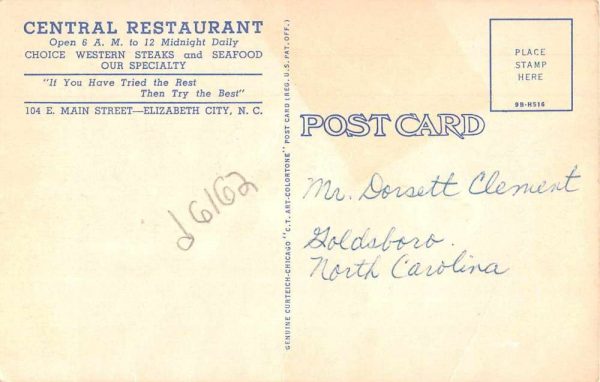 CENTRAL RESTAURANT
Open 6 A. M. to 12 Midnight Daily
CHOICE WESTERN STEAKS and SEAFOOD
OUR SPECIALTY
"If You Have Tried the Rest
Then Try the Best"
104 E. MAIN STREET—ELIZABETH CITY, N. C.
GENUINE CURTEICH-CHICAGO "C.T. ART-COLORTONE" POST CARD (REG. U.S. PAT. OFF.)
PLACE
STAMP
HERE
9B-H516
POST CARD
Mr. Dorsett Clement
Goldsboro.
North Carolina